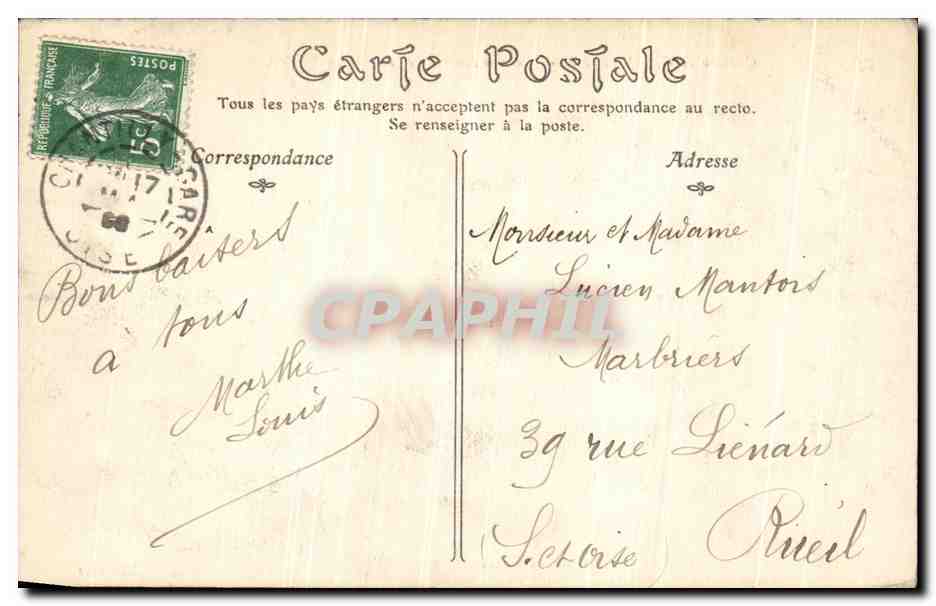 Carte Postale
Tous les pays étrangers n'acceptent pas la correspondance au recto.
Se renseigner à la poste.
POSTES
REPUBLIQUE FRANÇAISE
5c
GARE
17
OISE
Correspondance
Adresse
Bons baisers
à tous
Marthe
Louis
Monsieur et Madame
Lucien Mantois
Marbriers
39 rue Liénard
Rueil
(S. et Oise)
CPAPHIL